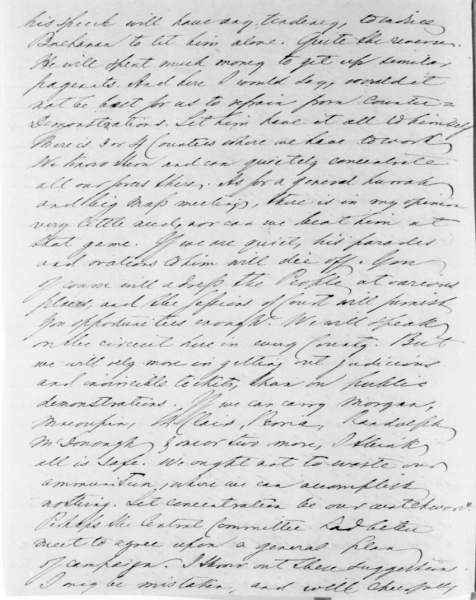 his speech will have any tendency, to induce
Buchanan to let him alone. Quite the reverse.
He will spend much money to get up similar
pageants. And here I would say, would it
not be best for us to refrain from Counter=
Demonstrations. Let him have it all to himself
There is 3 or 4 Counties where we have to work
We know them and can quietly concentrate
all our forces there. As for a general hurrah
and big mass meeting, there is in my opinion
very little need, nor can we beat him at
that game. If we are quiet, his parades
and orations to him will die off. You
of course will address the People at various
places, and the sessions of Court will furnish
you opportunities enough. We will speak
on the circuit here in every County. But
we will rely more in getting out judicious
and invincible tickets, than on public
demonstrations. If we can carry Morgan,
Macoupin, St Clair, Peoria, Randolph
McDonough & one or two more, I think
all is safe. We ought not to waste our
ammunition, where we can accomplish
nothing. Let concentration be our watchword.
Perhaps the Central Committee had better
meet to agree upon a general plan
of campaign. I throw out these suggestions.
I may be mistaken, and will cheerfully